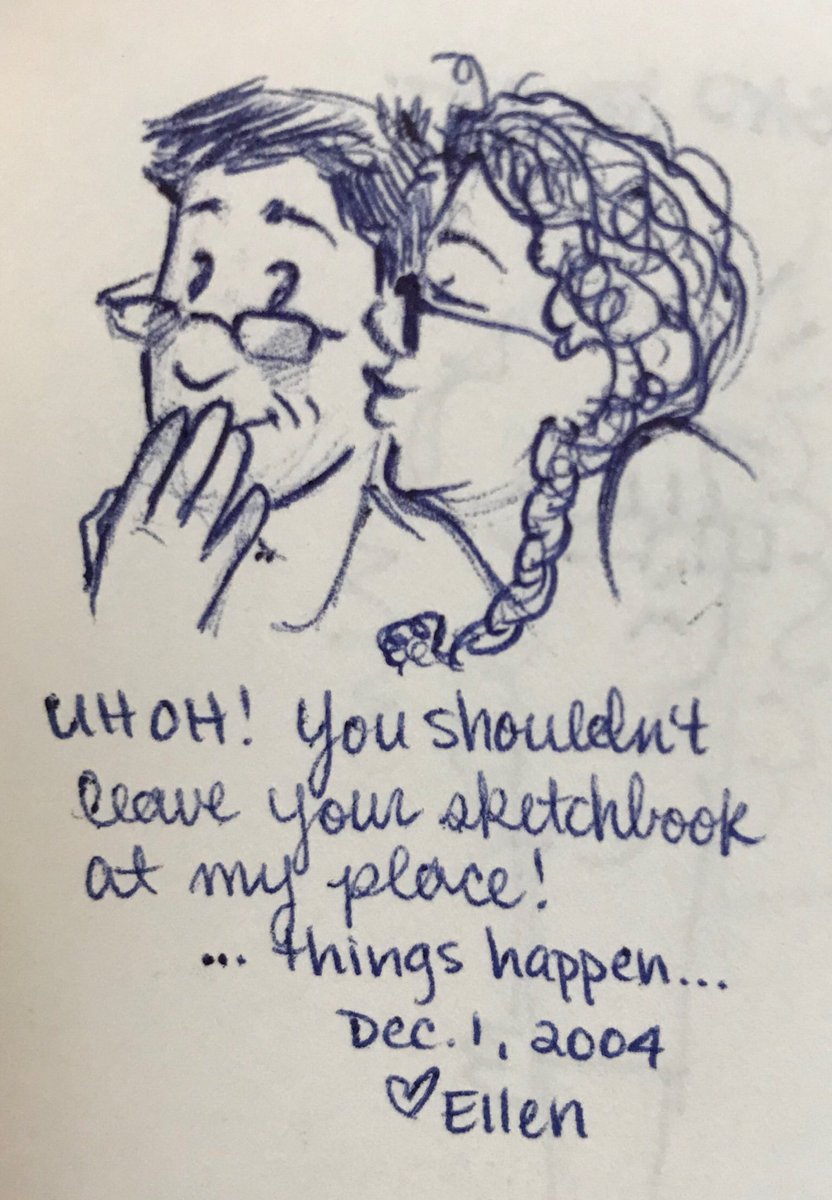 UH OH! You shouldn't
leave your sketchbook
at my place!
... things happen...
Dec. 1, 2004
♡Ellen